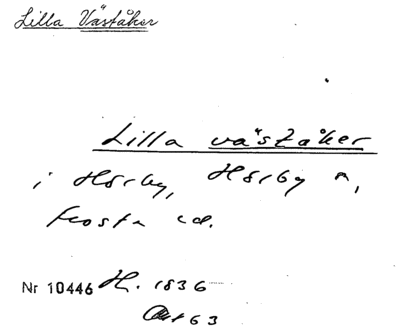 Lilla Väståker
Lilla väståker
i Hörby, Hörby
Frosta
Nr 10446 H. 1836
63